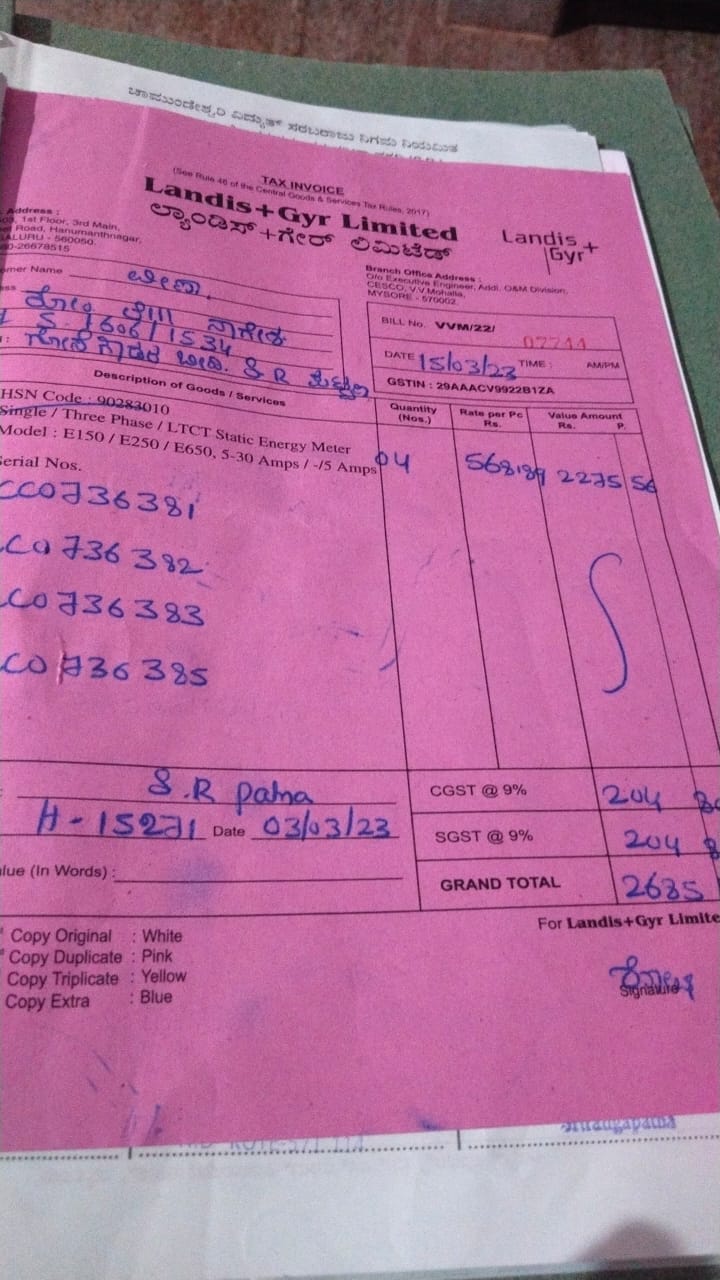 ಚಾಮುಂಡೇಶ್ವರಿ ವಿದ್ಯುತ್ ಸರಬರಾಜು ನಿಗಮ ನಿಯಮಿತ
TAX INVOICE
(See Rule 46 of the Central Goods & Services Tax Rules, 2017)
Landis+Gyr Limited
ಲ್ಯಾಂಡಿಸ್+ಗೇರ್ ಲಿಮಿಟೆಡ್
Landis+
Gyr
Address :
1st Floor, 3rd Main,
Road, Hanumanthnagar,
ALURU - 560050.
26678515
Branch Office Address :
O/o Executive Engineer, Addl. O&M Division,
CESCO, V.V.Mohalla,
MYSORE - 570002.
omer Name ವೀಣಾ
BILL No. VVM/22/ 02744
DATE 15/03/23 TIME : AM/PM
GSTIN : 29AAACV9922B1ZA
S R
Description of Goods / Services
Quantity (Nos.)
Rate per Pc Rs.
Value Amount Rs. P.
HSN Code : 90283010
Single / Three Phase / LTCT Static Energy Meter
Model : E150 / E250 / E650, 5-30 Amps / -/5 Amps
04 568.89 2275 56
erial Nos.
CC0736381
C0736382
C0736383
C0736385
S.R patna
H-15271 Date 03/03/23
alue (In Words) :
CGST @ 9% 204
SGST @ 9% 204
GRAND TOTAL 2685
For Landis+Gyr Limite
Signature
Copy Original : White
Copy Duplicate : Pink
Copy Triplicate : Yellow
Copy Extra : Blue